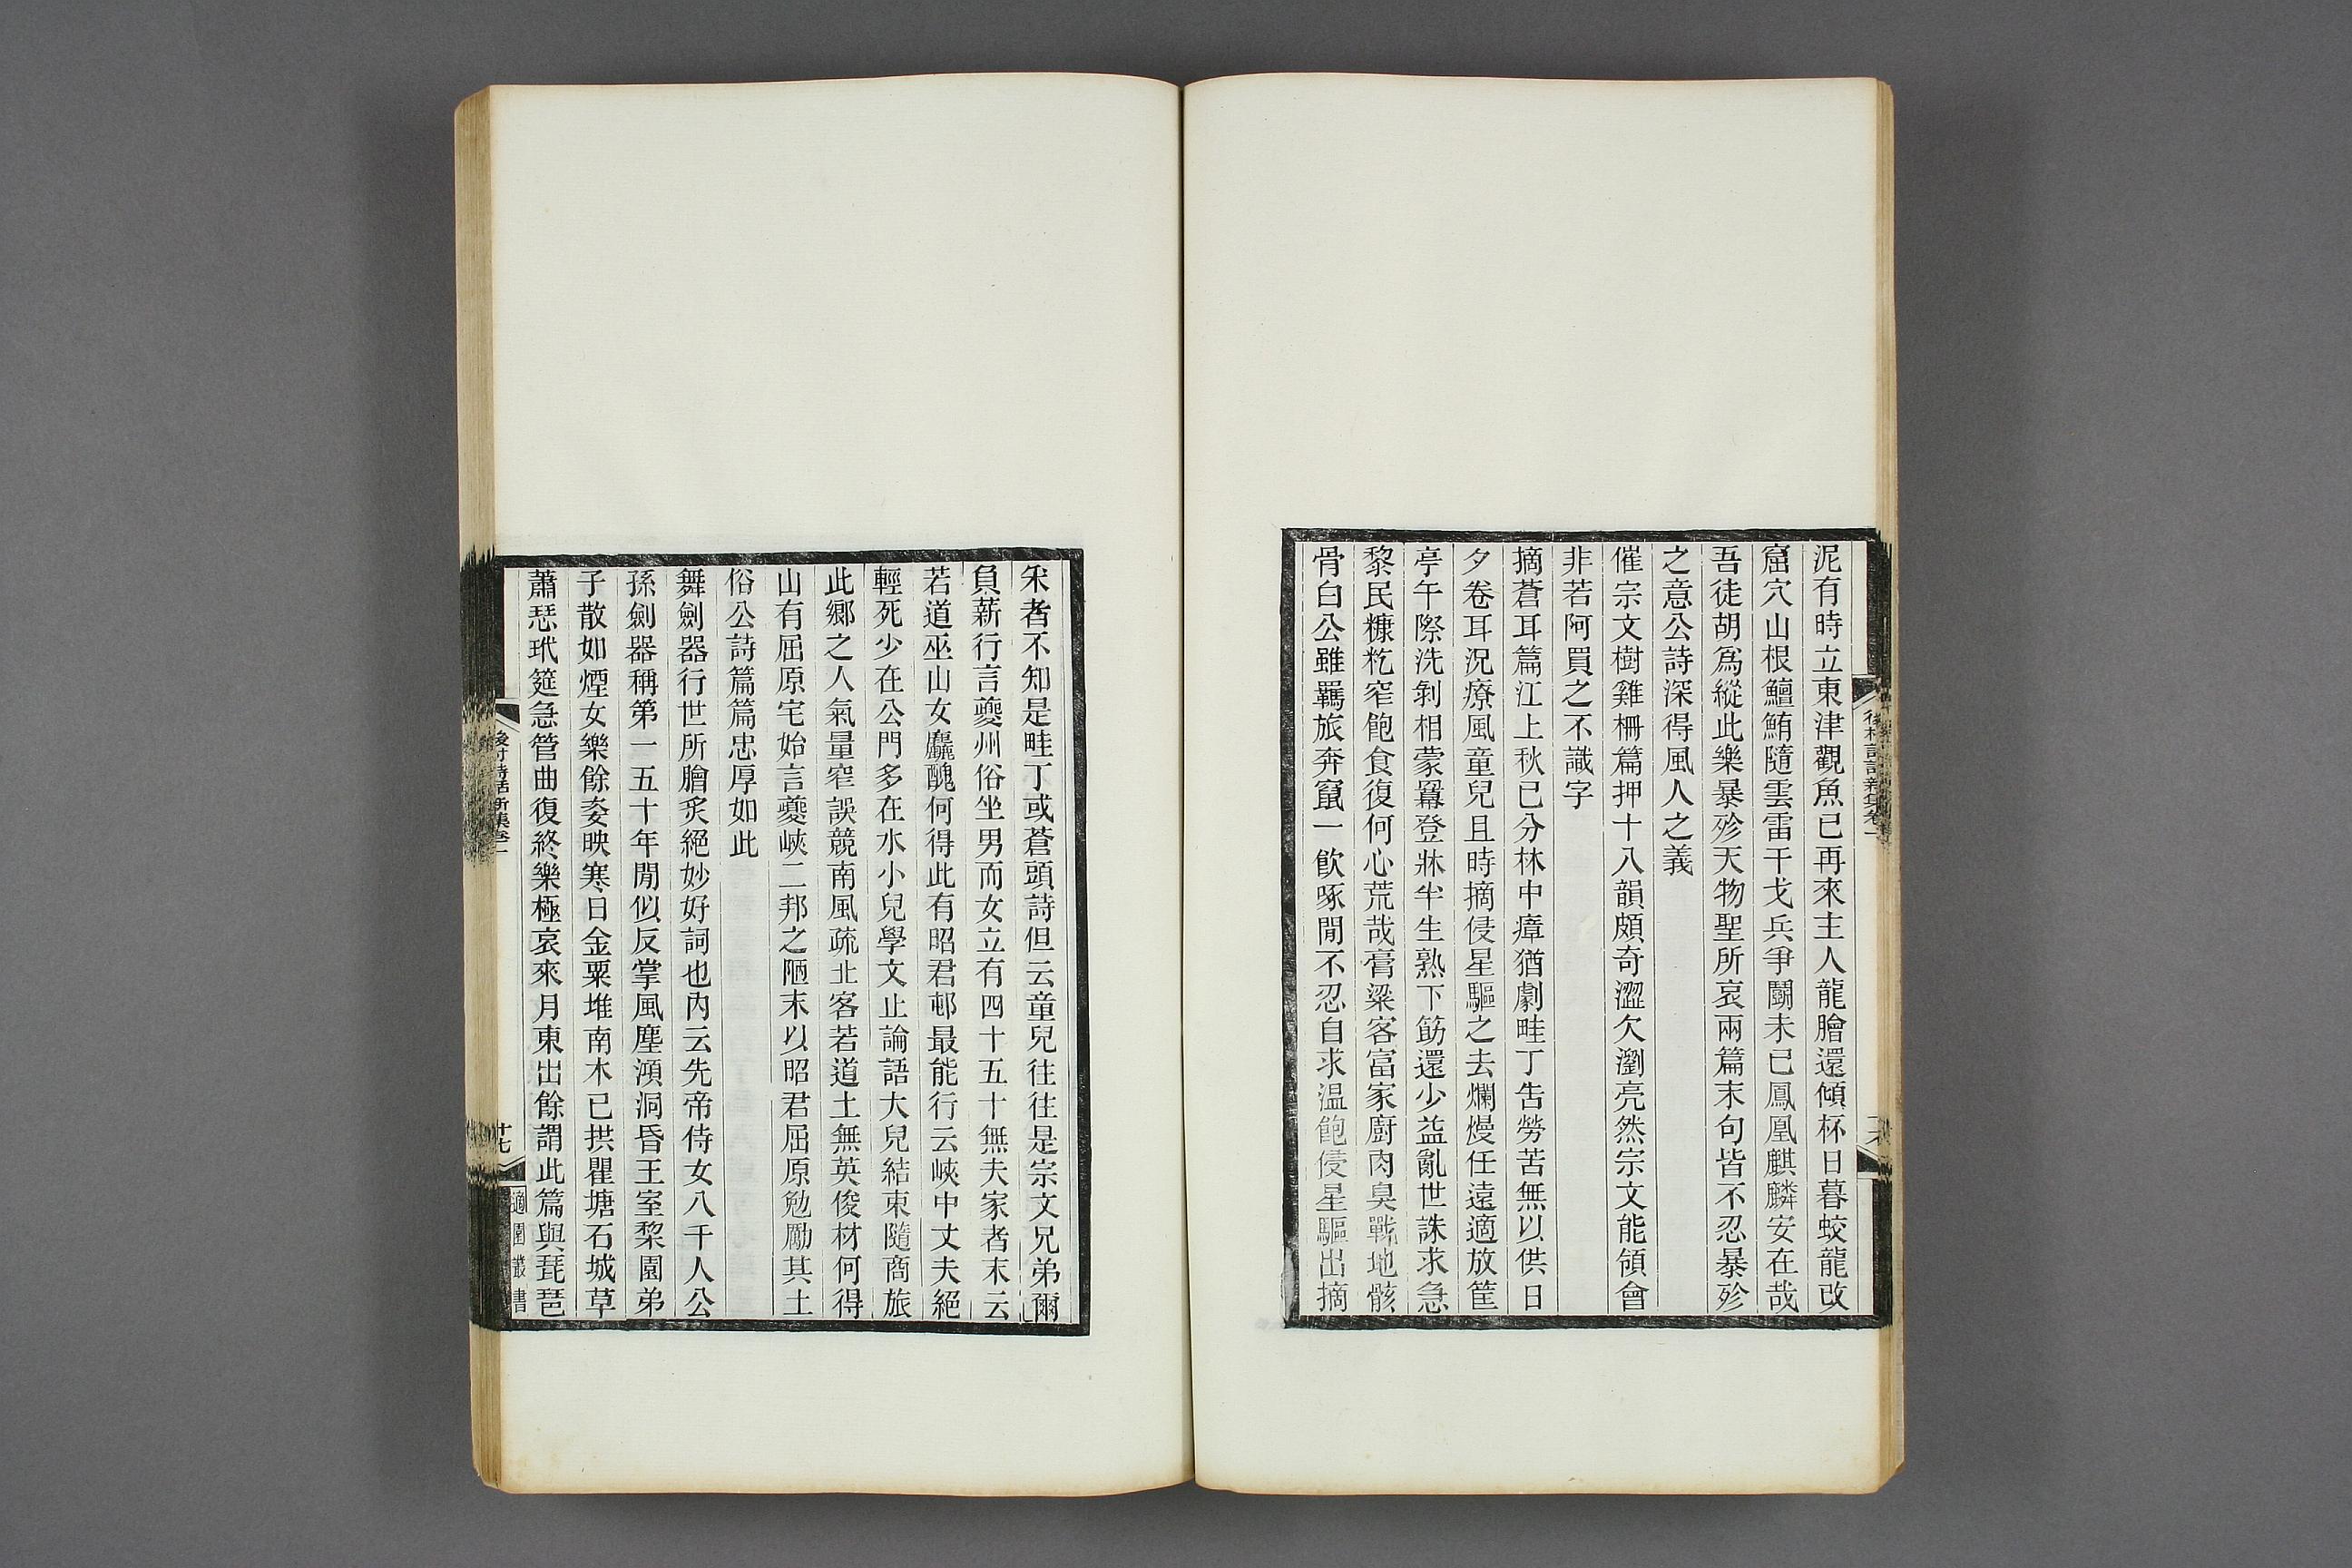 泥有時立東津觀魚已再來主人龍膾還傾杯日暮蛟龍改
窟穴山根鱣鮪隨雲雷干戈兵爭鬭未已鳳凰麒麟安在哉
吾徒胡爲縱此樂暴殄天物聖所哀兩篇末句皆不忍暴殄
之意公詩深得風人之義
催宗文樹雞柵篇押十八韻頗奇澀欠瀏亮然宗文能領會
非若阿買之不識字
摘蒼耳篇江上秋已分林中瘴猶劇畦丁告勞苦無以供日
夕卷耳況療風童兒且時摘侵星驅之去爛熳任遠適放筐
亭午際洗剝相蒙羃登牀半生熟下筯還少益亂世誅求急
黎民糠籺窄飽食復何心荒哉膏粱客富家廚肉臭戰地骸
骨白公雖羈旅奔竄一飲啄閒不忍自求温飽侵星驅出摘
後村詩話新集卷一
釆者不知是畦丁或蒼頭詩但云童兒往往是宗文兄弟爾
負薪行言夔州俗坐男而女立有四十五十無夫家者末云
若道巫山女麤醜何得此有昭君邨最能行云峽中丈夫絕
輕死少在公門多在水小兒學文止論語大兒結束隨商旅
此鄉之人氣量窄誤競南風疏北客若道土無英俊材何得
山有屈原宅始言夔峽二邦之陋末以昭君屈原勉勵其土
俗公詩篇篇忠厚如此
舞劍器行世所膾炙絕妙好詞也內云先帝侍女八千人公
孫劍器稱第一五十年閒似反掌風塵澒洞昏王室棃園弟
子散如煙女樂餘姿映寒日金粟堆南木已拱瞿塘石城草
蕭瑟玳筵急管曲復終樂極哀來月東出餘謂此篇與琵琶
後村詩話新集卷一
十七
適園叢書